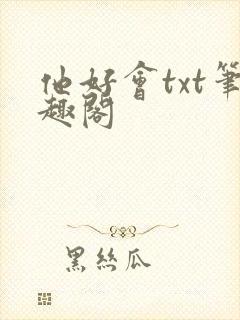 他好會txt筆
趣閣
黑絲瓜